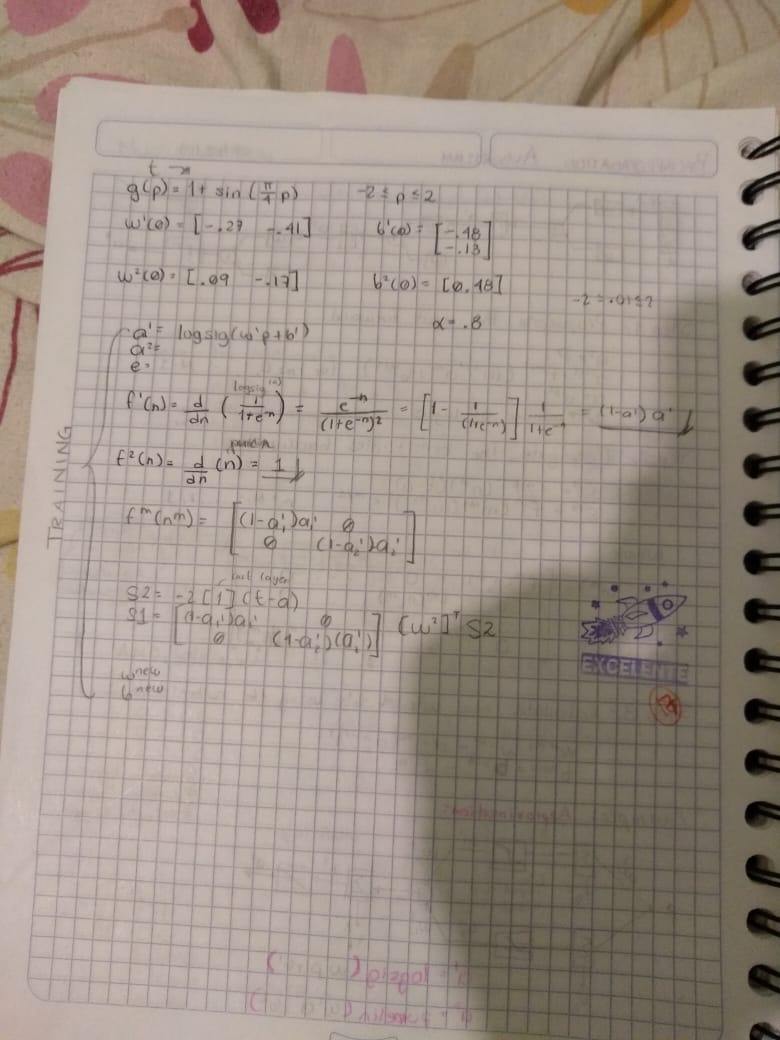 t
g(p) = 1 + sin (π/4 p)   -2 ≤ p ≤ 2
w¹(0) = [-.27  -.41]   b¹(0) = [-.48 -.13]
w²(0) = [.09  -.17]   b²(0) = [0.48]
α = .8
TRAINING
a¹ = logsig(w¹p + b¹)
a² =
e =
logsig(n)
f¹(n) = d/dn (1/(1+e⁻ⁿ)) = e⁻ⁿ/(1+e⁻ⁿ)² = [1 - 1/(1+e⁻ⁿ)] 1/(1+e⁻ⁿ) = (1-a¹) a¹
f²(n) = d/dn (n) = 1
fᵐ(nᵐ) = [(1-a₁¹)a₁¹  0
0  (1-a₂¹)a₂¹]
last layer
S2 = -2 [1] (t-a)
S1 = [(1-a₁¹)a₁¹  0
0  (1-a₂¹)(a₂¹)] [w²]ᵀ S2
wⁿᵉʷ
bⁿᵉʷ
EXCELENTE